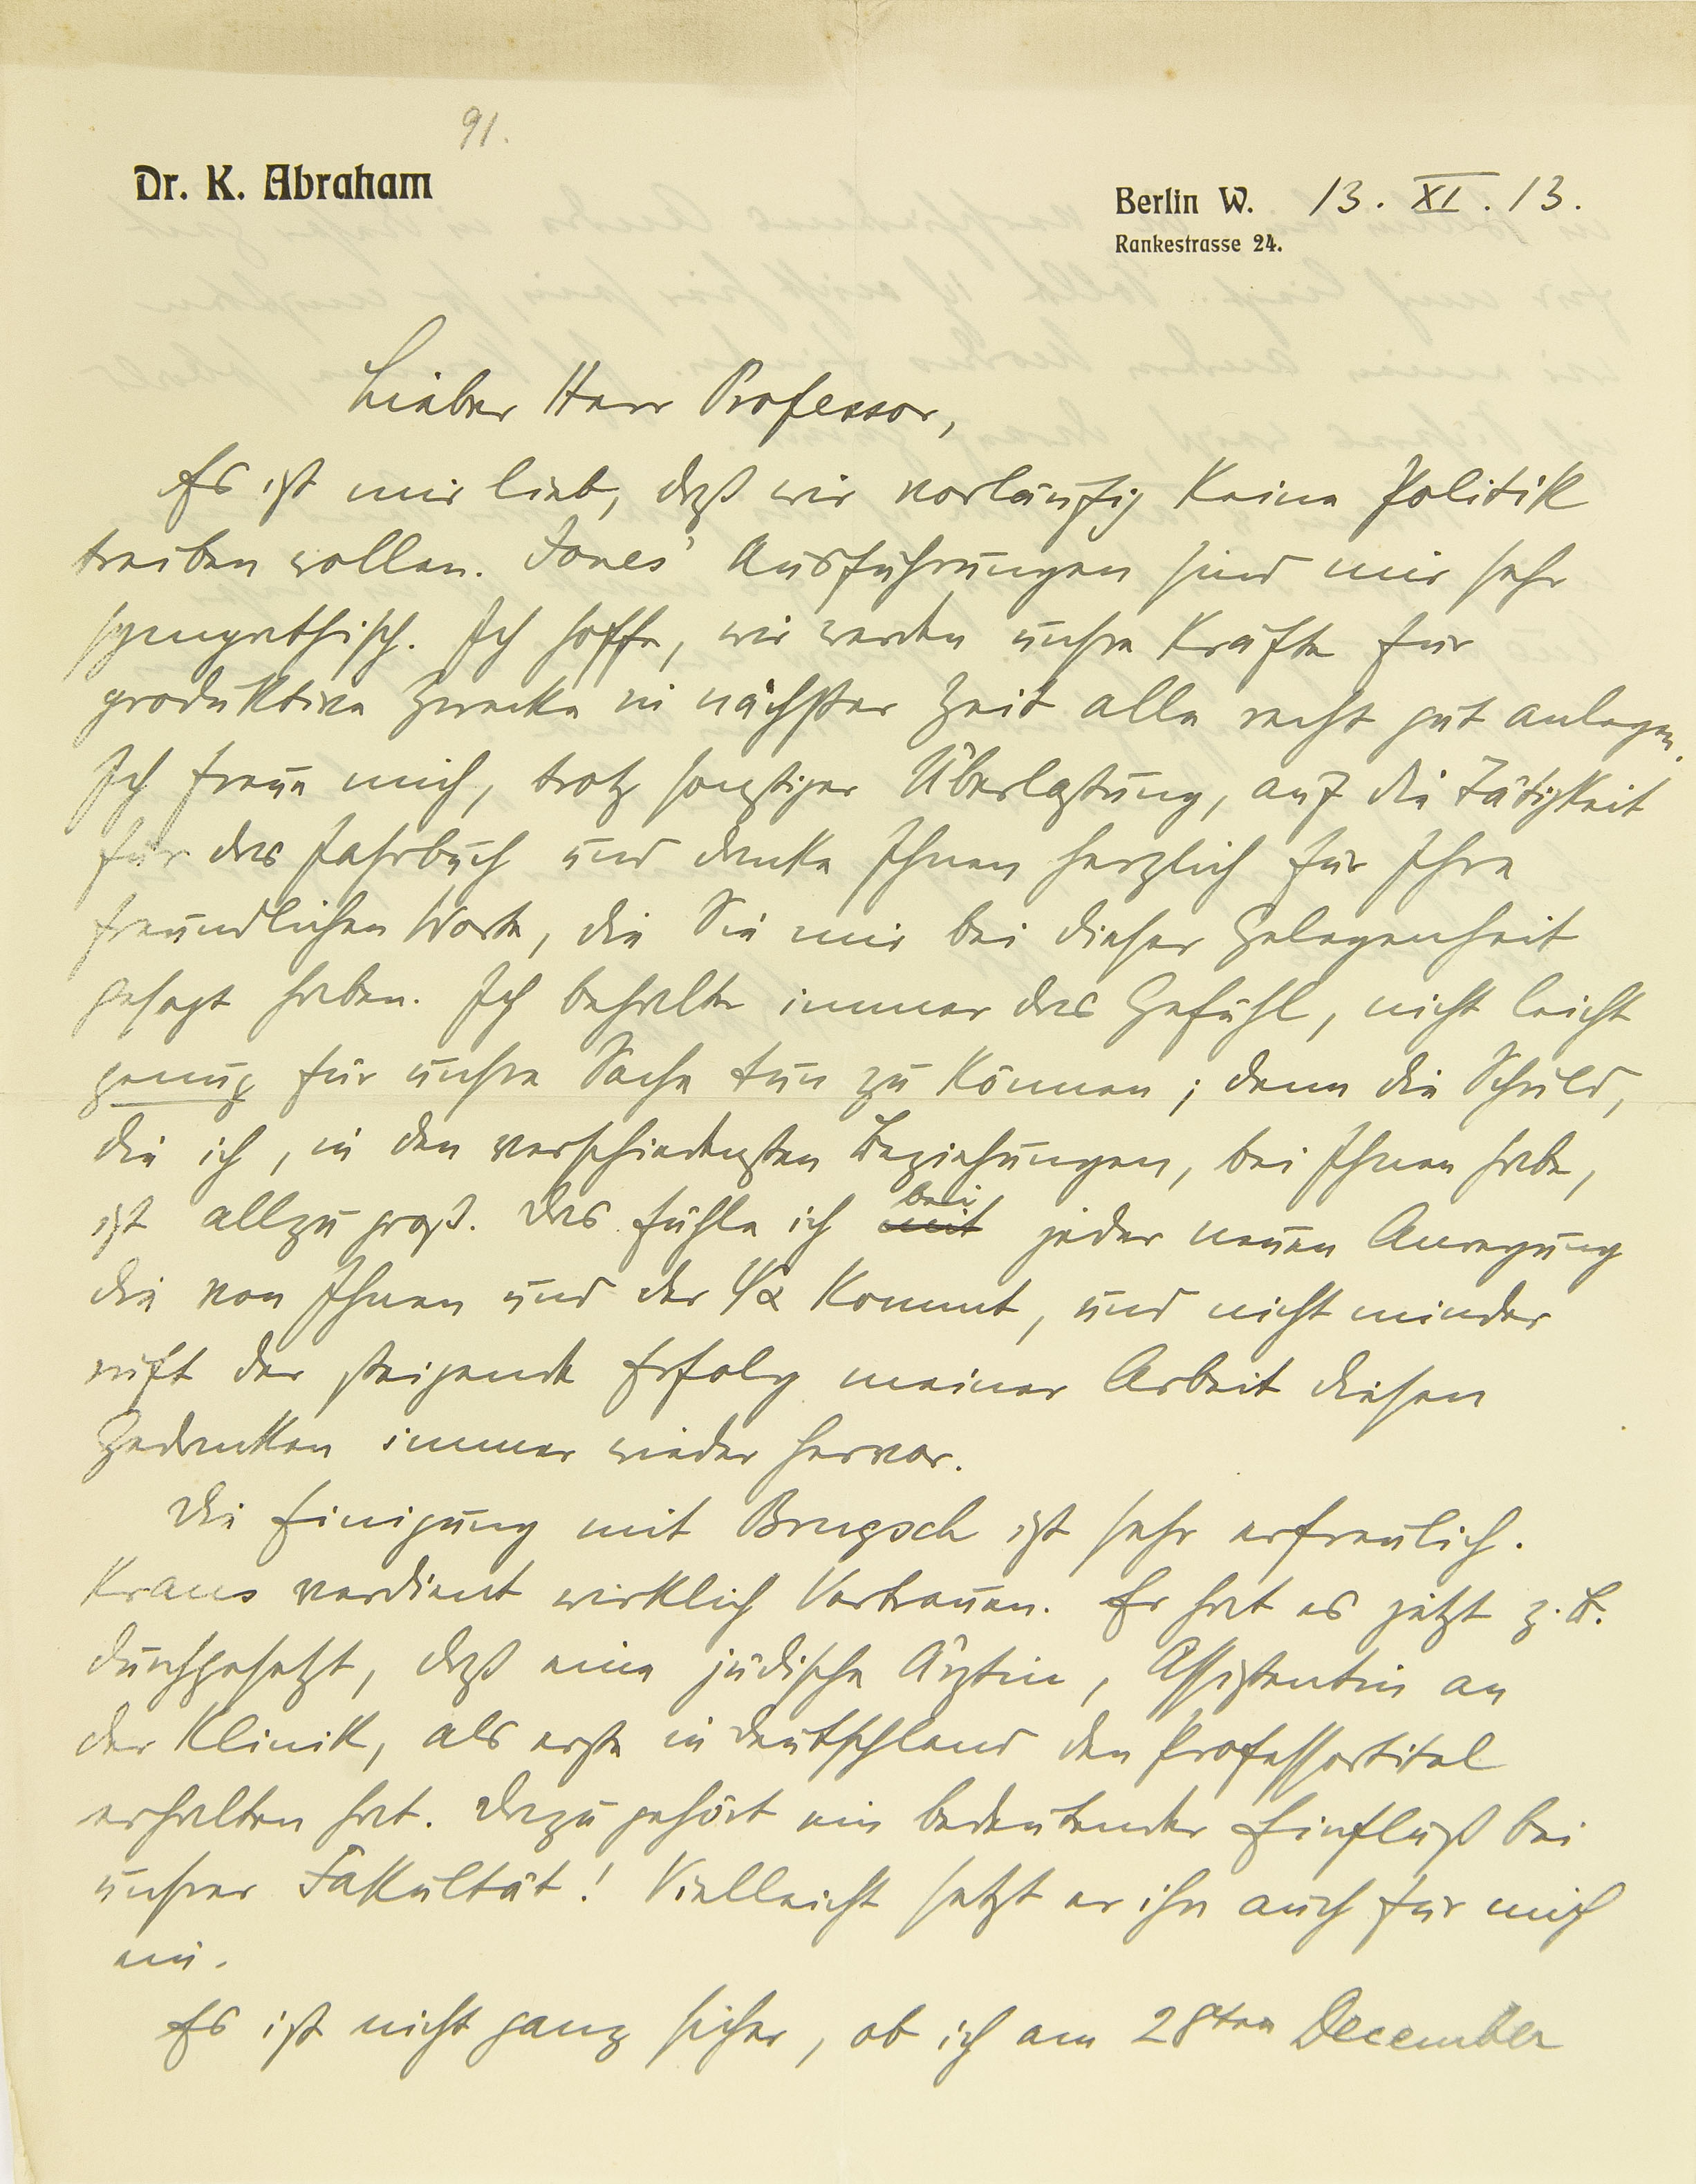 91.
Dr. K. Abraham
Berlin W. 13. XI. 13.
Rankestrasse 24.
Lieber Herr Professor,
Es ist mir lieb, daß wir vorläufig keine Politik
treiben wollen. Jones' Ausführungen sind mir sehr
sympathisch. Ich hoffe, wir werden unsre Kräfte für
produktive Zwecke in nächster Zeit alle recht gut anlegen.
Ich freue mich, trotz sonstiger Überlastung, auf die Tätigkeit
für das Jahrbuch und danke Ihnen herzlich für Ihre
freundlichen Worte, die Sie mir bei dieser Gelegenheit
gesagt haben. Ich behalte immer das Gefühl, nicht leicht
genug für unsre Sache tun zu können; denn die Schuld,
die ich, in den verschiedensten Beziehungen, bei Ihnen habe,
ist allzu groß. Das fühle ich mit bei jeder neuen Anregung
die von Ihnen und der ψα kommt, und nicht minder
ruft der steigende Erfolg meiner Arbeit diesen
Gedanken immer wieder hervor.
Die Einigung mit Brugsch ist sehr erfreulich.
Kraus verdient wirklich Vertrauen. Er hat es jetzt z. B.
durchgesetzt, daß eine jüdische Ärztin, Assistentin an
der Klinik, als erste in Deutschland den Professortitel
erhalten hat. Dazu gehört ein bedeutender Einfluß bei
unsrer Fakultät! Vielleicht setzt er ihn auch für mich
ein.
Es ist nicht ganz sicher, ob ich am 28ten December